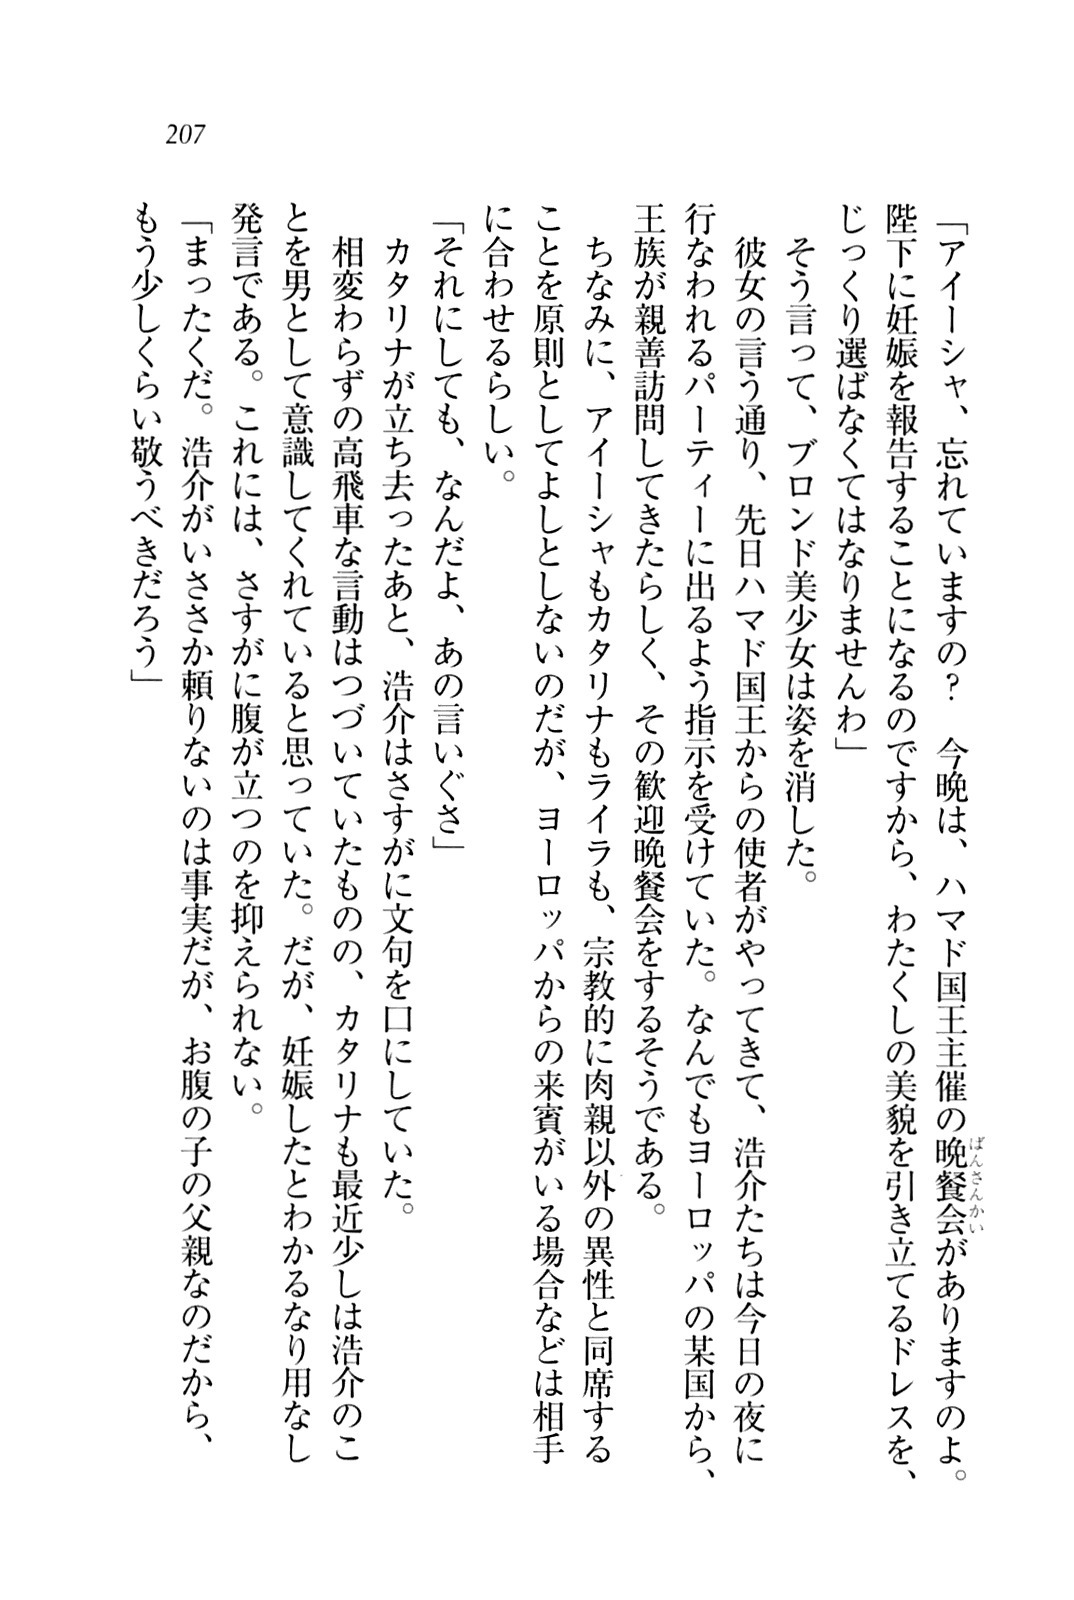 207
「アイーシャ、忘れていますの？　今晩は、ハマド国王主催の晩餐会がありますのよ。
ばんさんかい
陛下に妊娠を報告することになるのですから、わたくしの美貌を引き立てるドレスを、
じっくり選ばなくてはなりませんわ」
　そう言って、ブロンド美少女は姿を消した。
　彼女の言う通り、先日ハマド国王からの使者がやってきて、浩介たちは今日の夜に
行なわれるパーティーに出るよう指示を受けていた。なんでもヨーロッパの某国から、
王族が親善訪問してきたらしく、その歓迎晩餐会をするそうである。
　ちなみに、アイーシャもカタリナもライラも、宗教的に肉親以外の異性と同席する
ことを原則としてよしとしないのだが、ヨーロッパからの来賓がいる場合などは相手
に合わせるらしい。
「それにしても、なんだよ、あの言いぐさ」
　カタリナが立ち去ったあと、浩介はさすがに文句を口にしていた。
　相変わらずの高飛車な言動はつづいていたものの、カタリナも最近少しは浩介のこ
とを男として意識してくれていると思っていた。だが、妊娠したとわかるなり用なし
発言である。これには、さすがに腹が立つのを抑えられない。
「まったくだ。浩介がいささか頼りないのは事実だが、お腹の子の父親なのだから、
もう少しくらい敬うべきだろう」